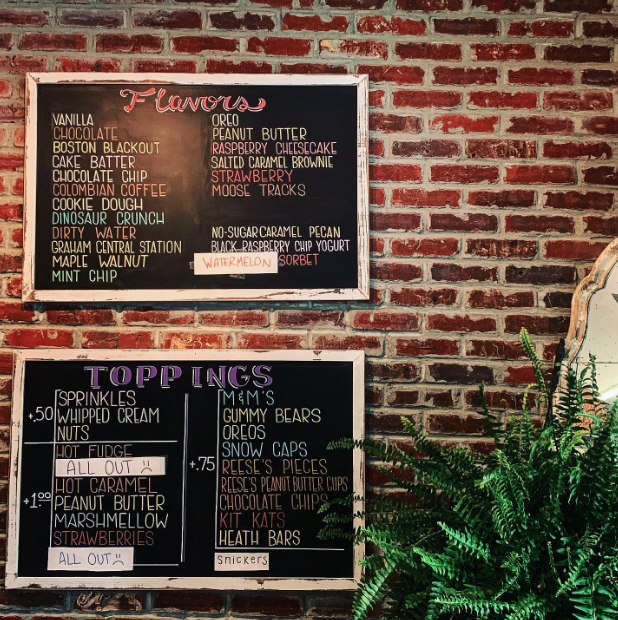 Flavors
VANILLA
CHOCOLATE
BOSTON BLACKOUT
CAKE BATTER
CHOCOLATE CHIP
COLOMBIAN COFFEE
COOKIE DOUGH
DINOSAUR CRUNCH
DIRTY WATER
GRAHAM CENTRAL STATION
MAPLE WALNUT
MINT CHIP
OREO
PEANUT BUTTER
RASPBERRY CHEESECAKE
SALTED CARAMEL BROWNIE
STRAWBERRY
MOOSE TRACKS
NO-SUGAR CARAMEL PECAN
BLACK RASPBERRY CHIP YOGURT
WATERMELON SORBET
TOPPINGS
+.50
SPRINKLES
WHIPPED CREAM
NUTS
+1.00
HOT FUDGE
ALL OUT :(
HOT CARAMEL
PEANUT BUTTER
MARSHMELLOW
STRAWBERRIES
ALL OUT :(
+.75
M&M'S
GUMMY BEARS
OREOS
SNOW CAPS
REESE'S PIECES
REESE'S PEANUT BUTTER CUPS
CHOCOLATE CHIPS
KIT KATS
HEATH BARS
Snickers